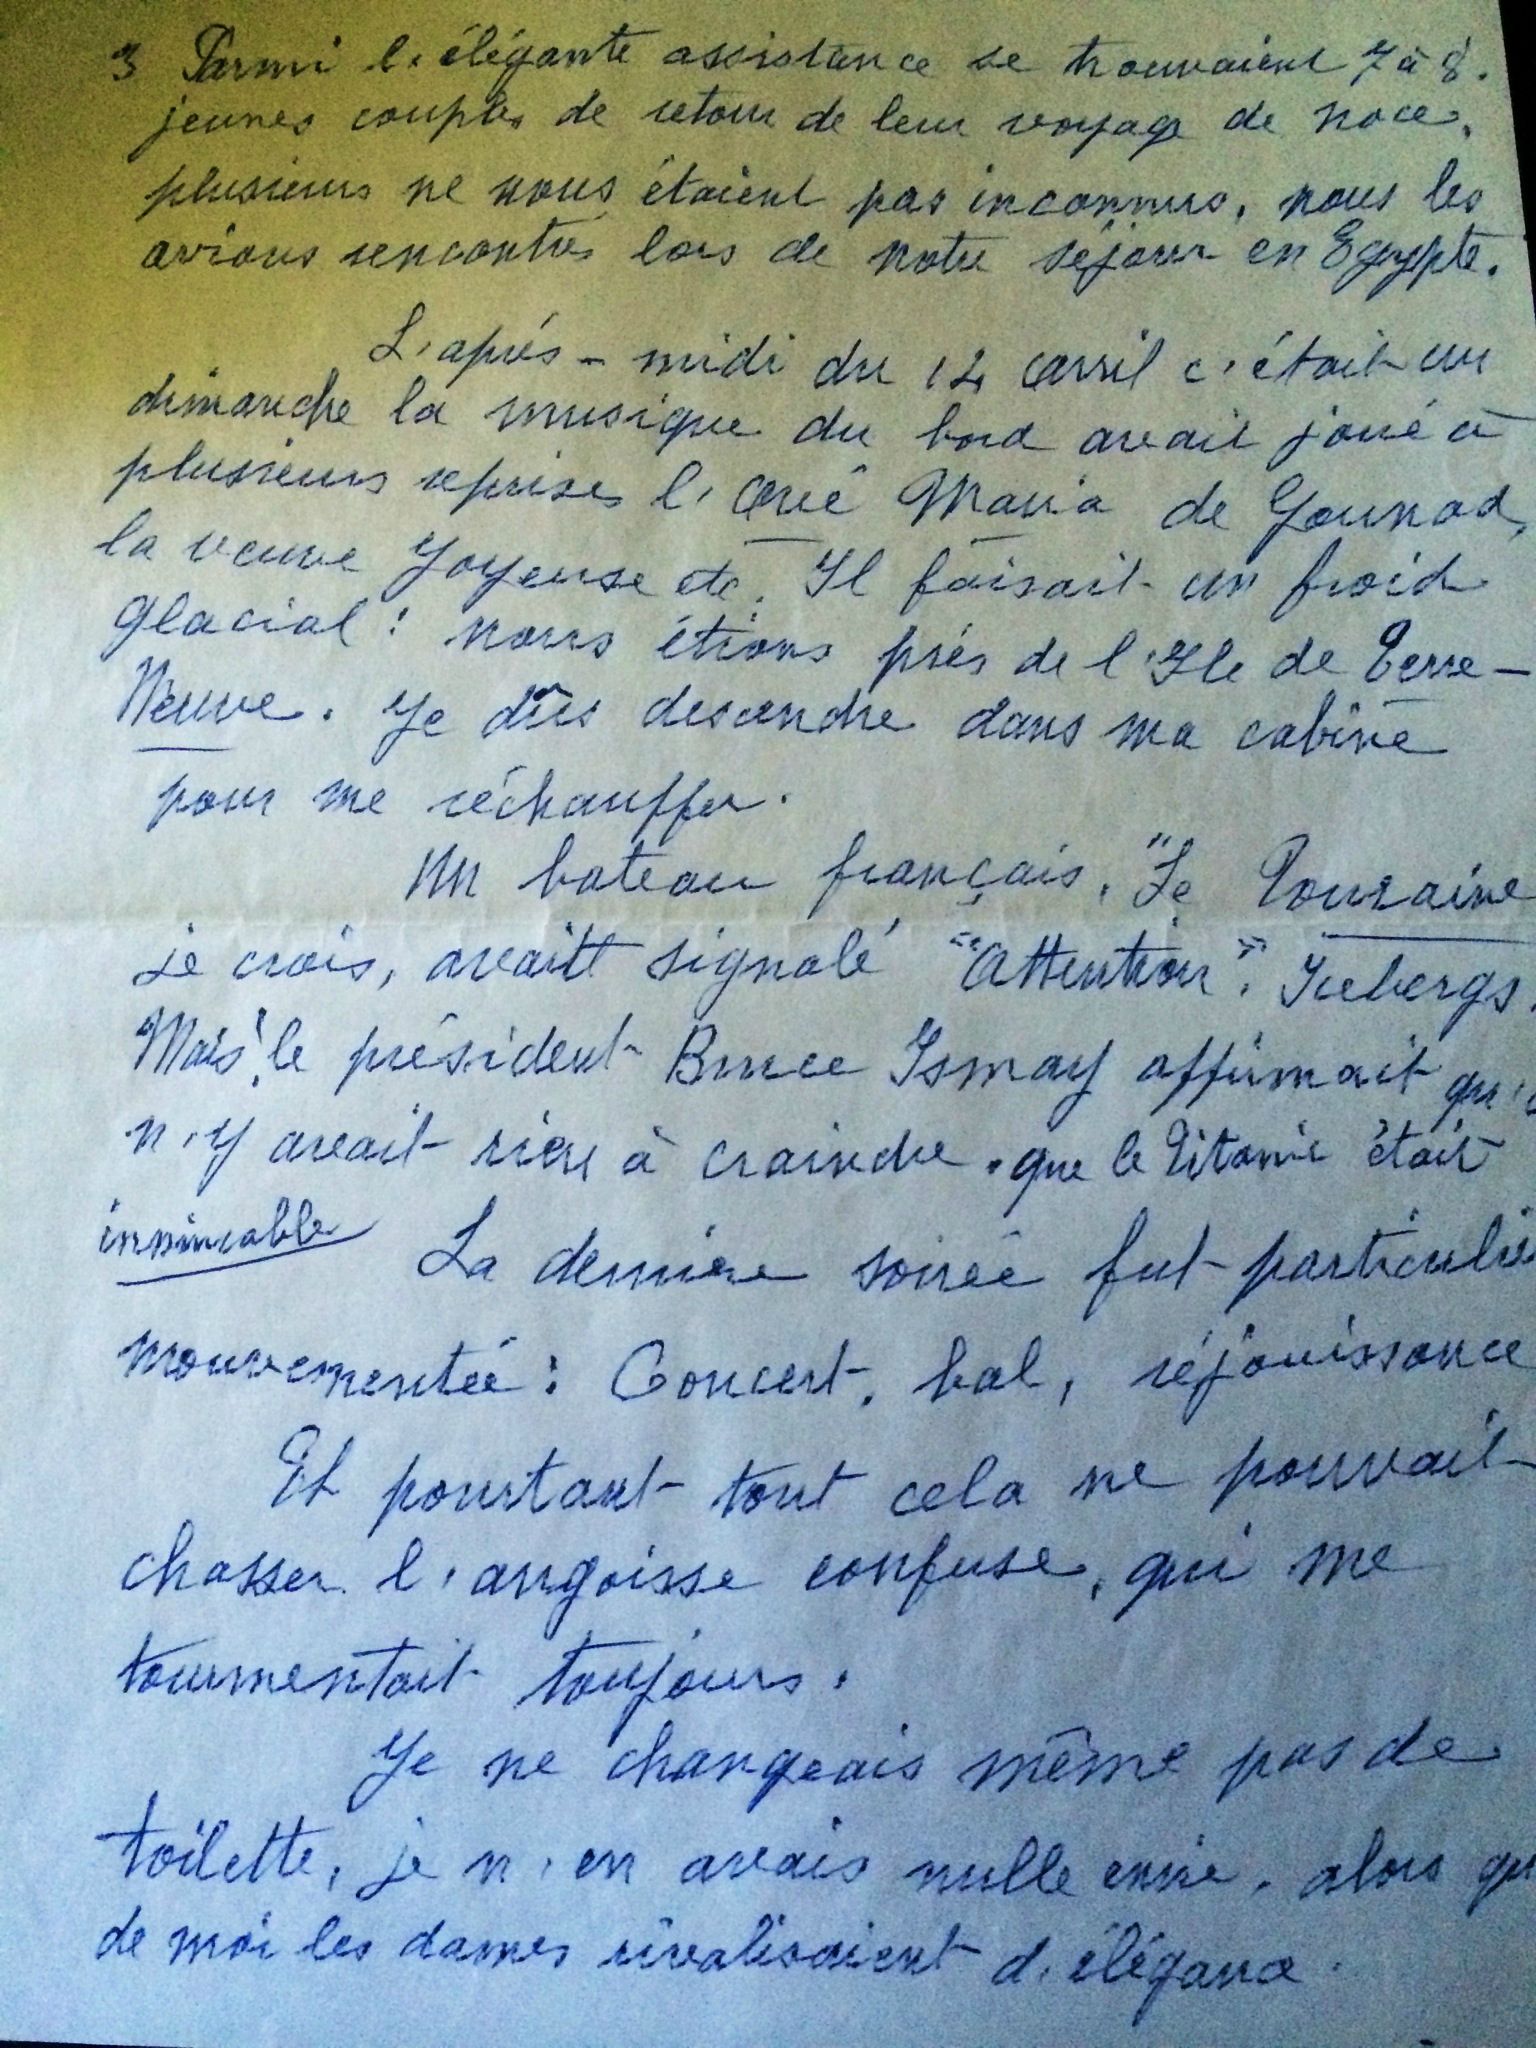 3 Parmi l'élégante assistance se trouvaient 7 à 8.
jeunes couples de retour de leur voyage de noce,
plusieurs ne nous étaient pas inconnus, nous les
avions rencontrés lors de notre séjour en Egypte.
L'après-midi du 14 avril c'était un
dimanche la musique du bord avait joué à
plusieurs reprises l'Avé Maria de Gounod,
la veuve Joyeuse etc. Il faisait un froid
glacial: nous étions près de l'Ile de Terre-
Neuve. Je dûs descendre dans ma cabine
pour me réchauffer.
Un bateau français, "Le Touraine
je crois, avait signalé "Attention". Icebergs.
Mais le président Bruce Ismay affirmait qu'i
n'y avait rien à craindre. que le Titanic était
La dernière soirée fut particuliè
mouvementée: Concert, bal, réjouissance
Et pourtant tout cela ne pouvait
chasser l'angoisse confuse, qui me
tourmentait toujours.
Je ne changeais même pas de
toilette, je n'en avais nulle envie, alors qu
de moi les dames rivalisaient d'élégance.